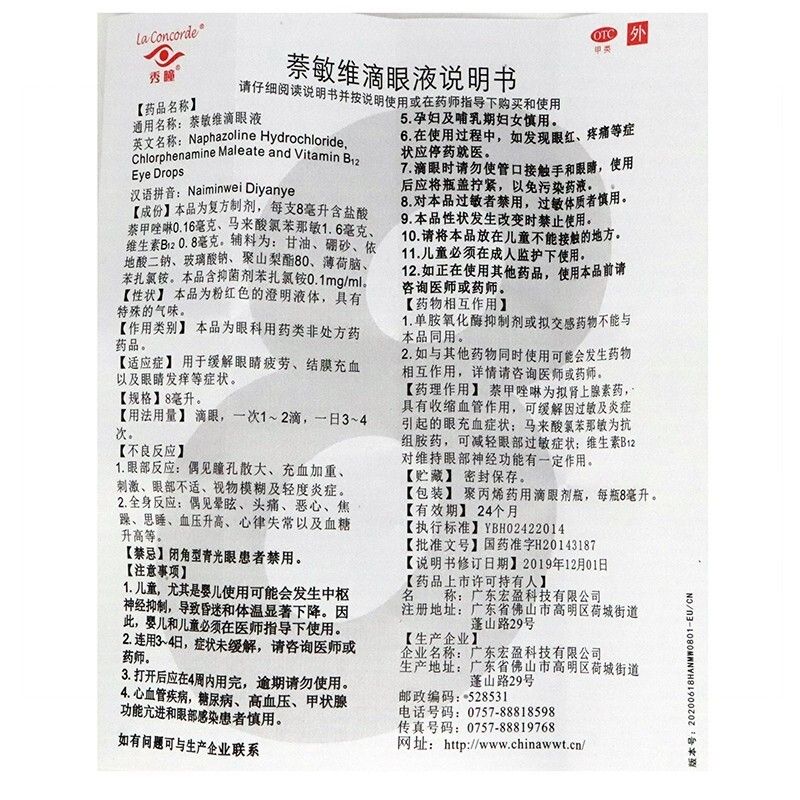 La Concorde®
秀瞳®
OTC
甲类
外
萘敏维滴眼液说明书
请仔细阅读说明书并按说明使用或在药师指导下购买和使用
【药品名称】
通用名称：萘敏维滴眼液
英文名称：Naphazoline Hydrochloride,
Chlorphenamine Maleate and Vitamin B12
Eye Drops
汉语拼音：Naiminwei Diyanye
【成份】本品为复方制剂，每支8毫升含盐酸
萘甲唑啉0.16毫克、马来酸氯苯那敏1.6毫克、
维生素B12 0.8毫克。辅料为：甘油、硼砂、依
地酸二钠、玻璃酸钠、聚山梨酯80、薄荷脑、
苯扎氯铵。本品含抑菌剂苯扎氯铵0.1mg/ml。
【性状】 本品为粉红色的澄明液体，具有
特殊的气味。
【作用类别】 本品为眼科用药类非处方药
药品。
【适应症】 用于缓解眼睛疲劳、结膜充血
以及眼睛发痒等症状。
【规格】8毫升。
【用法用量】 滴眼，一次1～2滴，一日3～4
次。
【不良反应】
1.眼部反应：偶见瞳孔散大、充血加重、
刺激、眼部不适、视物模糊及轻度炎症。
2.全身反应：偶见晕眩、头痛、恶心、焦
躁、思睡、血压升高、心律失常以及血糖
升高等。
【禁忌】闭角型青光眼患者禁用。
【注意事项】
1.儿童，尤其是婴儿使用可能会发生中枢
神经抑制，导致昏迷和体温显著下降。因
此，婴儿和儿童必须在医师指导下使用。
2.连用3~4日，症状未缓解，请咨询医师或
药师。
3.打开后应在4周内用完，逾期请勿使用。
4.心血管疾病，糖尿病、高血压、甲状腺
功能亢进和眼部感染患者慎用。
如有问题可与生产企业联系
5.孕妇及哺乳期妇女慎用。
6.在使用过程中，如发现眼红、疼痛等症
状应停药就医。
7.滴眼时请勿使管口接触手和眼睛，使用
后应将瓶盖拧紧，以免污染药液。
8.对本品过敏者禁用，过敏体质者慎用。
9.本品性状发生改变时禁止使用。
10.请将本品放在儿童不能接触的地方。
11.儿童必须在成人监护下使用。
12.如正在使用其他药品，使用本品前请
咨询医师或药师。
【药物相互作用】
1.单胺氧化酶抑制剂或拟交感药物不能与
本品同用。
2.如与其他药物同时使用可能会发生药物
相互作用，详情请咨询医师或药师。
【药理作用】 萘甲唑啉为拟肾上腺素药，
具有收缩血管作用，可缓解因过敏及炎症
引起的眼充血症状；马来酸氯苯那敏为抗
组胺药，可减轻眼部过敏症状；维生素B12
对维持眼部神经功能有一定作用。
【贮藏】 密封保存。
【包装】 聚丙烯药用滴眼剂瓶，每瓶8毫升。
【有效期】 24个月
【执行标准】YBH02422014
【批准文号】国药准字H20143187
【说明书修订日期】2019年12月01日
【药品上市许可持有人】
名 称：广东宏盈科技有限公司
注册地址：广东省佛山市高明区荷城街道
蓬山路29号
【生产企业】
企业名称：广东宏盈科技有限公司
生产地址：广东省佛山市高明区荷城街道
蓬山路29号
邮政编码：528531
电话号码：0757-88818598
传真号码：0757-88819768
网址：http://www.chinawwt.cn/
版本号：20200618HANMW0801-EU/CN